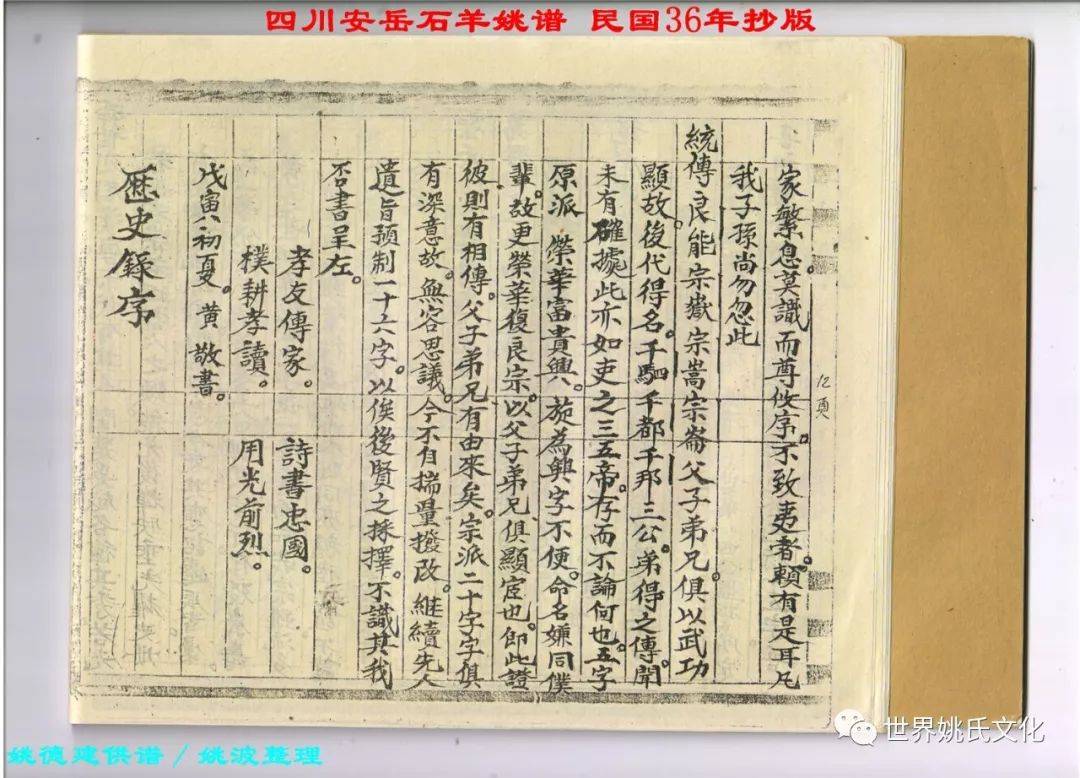 四川安岳石羊姚谱 民国36年抄版
家繁息。莫識而尊攸序。不致夷者。頼有是耳凡
我子孫尚勿忽此
統傳良能宗嶽宗嵩宗崙父子弟兄。俱以武功
顯故。後代得名。千駟千都千邦三公。弟得之傳聞
未有確據此亦如吏之三五帝。存而不論何也。五字
原派 榮華富貴興。旋為興字不便。命名嫌同僕
輩。故更榮華復良宗。以父子弟兄俱顯宦也。即此證
彼。則有相傳。父子弟兄有由來矣。宗派二十字字俱
有深意故。無容思議。今不自揣量擬改。継續先人
遺旨預制一十六字。以俟後賢之採擇。不識其我
否書呈左。
孝友傳家。 詩書忠國。
樸耕孝讀。 用光前烈。
戊寅初夏。黄 敬書。
歴史錄序
12頁
世界姚氏文化
姚德建供谱 / 姚波整理